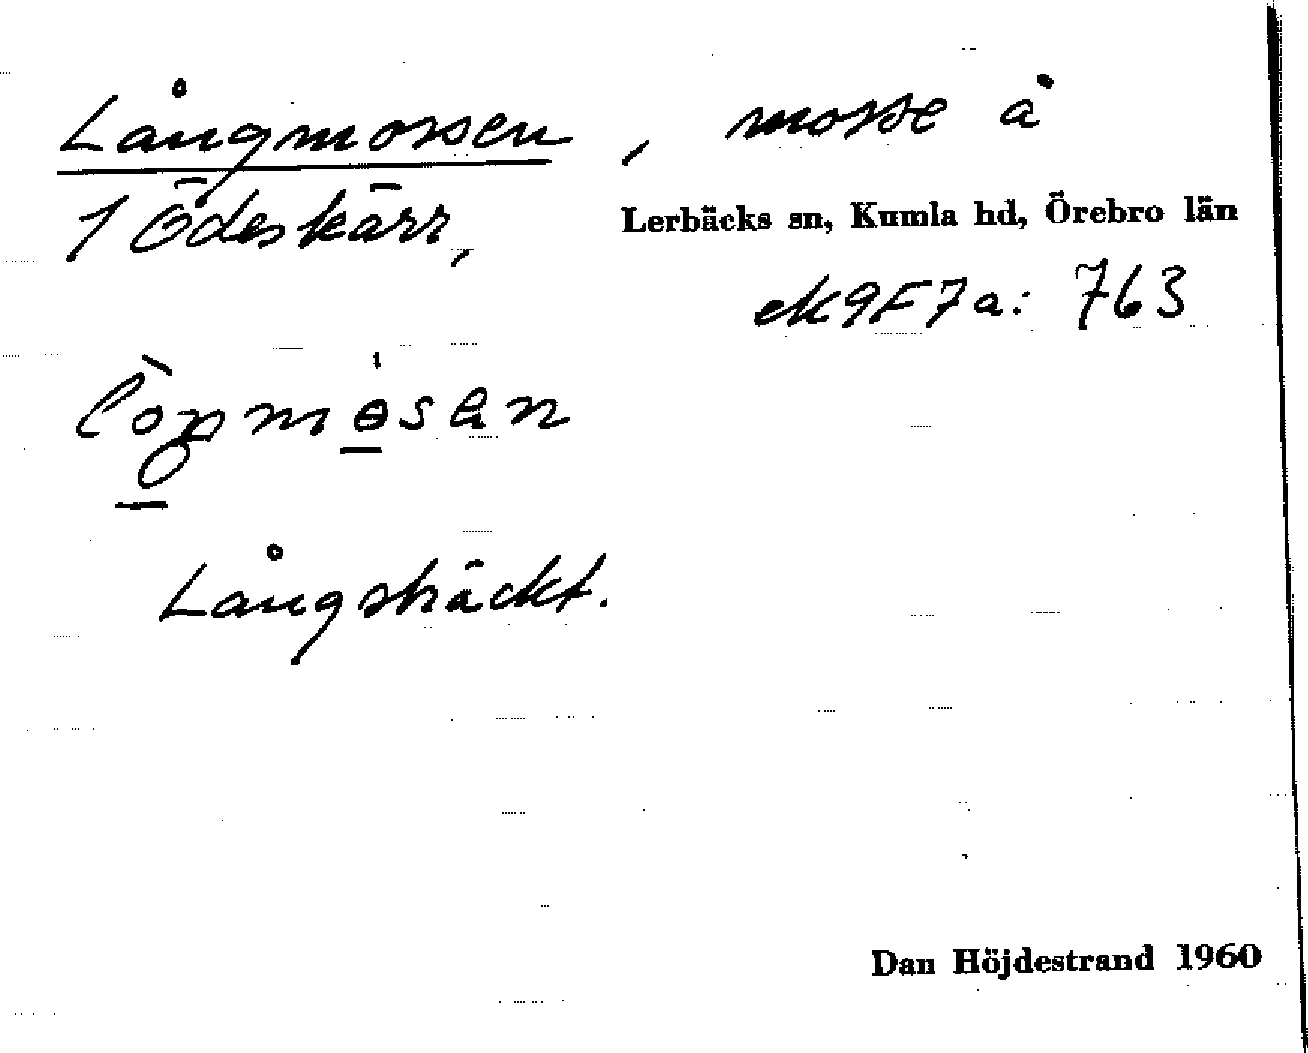 Långmossen, mosse å
1 Ödeskärr, Lerbäcks sn, Kumla hd, Örebro län
ek 9F7a: 763
Långsträckt.
Dan Höjdestrand 1960